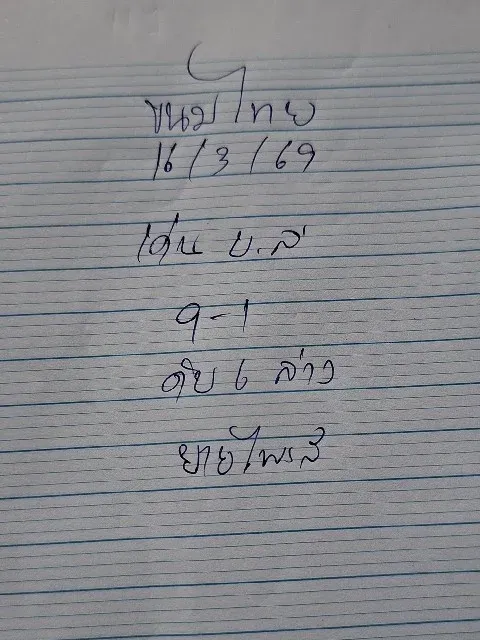 ขนมไทย
16/3/69
เด่น บ.ล่
9-1
ดับ 6 ล่าง
ยายไพรส